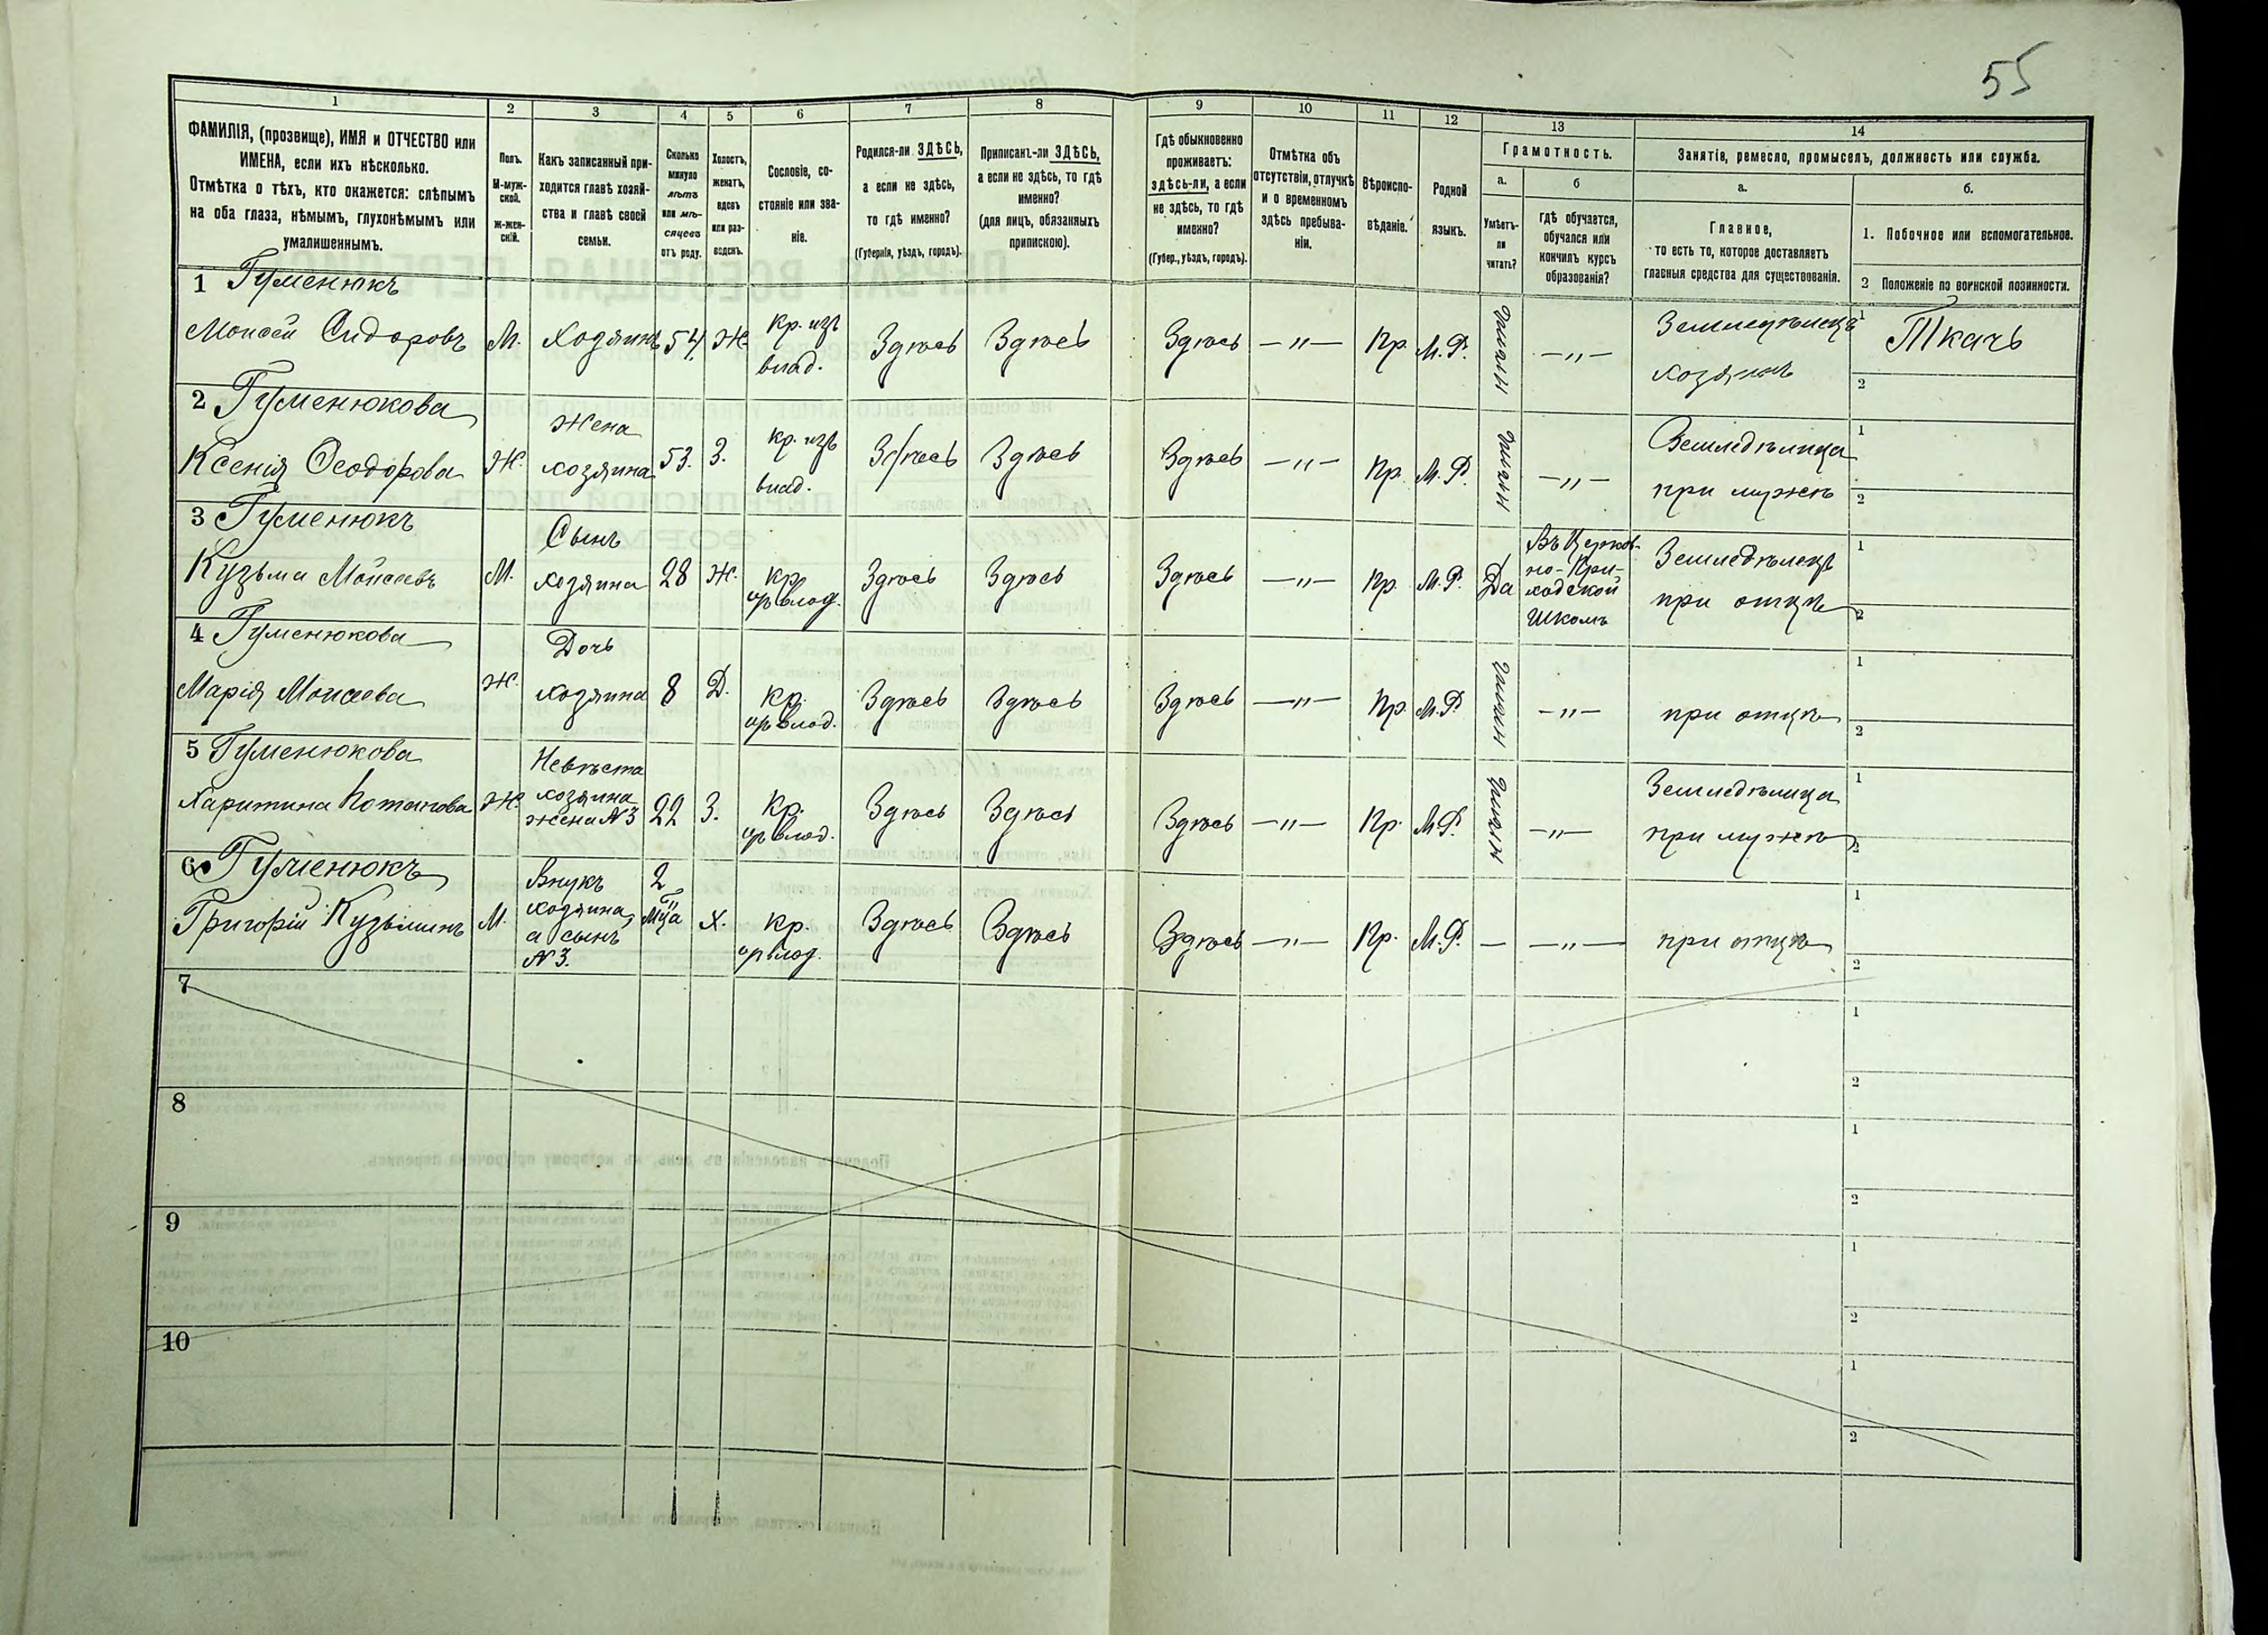 55
1 2 3 4 5 6 7 8 9 10 11 12 13 14
ФАМИЛІЯ, (прозвище), ИМЯ и ОТЧЕСТВО или
ИМЕНА, если ихъ нѣсколько.
Отмѣтка о тѣхъ, кто окажется: слѣпымъ
на оба глаза, нѣмымъ, глухонѣмымъ или
умалишеннымъ.
Полъ.
М-муж-
ской.
Ж-жен-
скій.
Какъ записанный при-
ходится главѣ хозяй-
ства и главѣ своей
семьи.
Сколько
минуло
лѣтъ
или мѣ-
сяцевъ
отъ роду.
Холостъ,
женатъ,
вдовъ
или раз-
веденъ.
Сословіе, со-
стояніе или зва-
ніе.
Родился-ли ЗДѢСЬ,
а если не здѣсь,
то гдѣ именно?
(Губернія, уѣздъ, городъ).
Приписанъ-ли ЗДѢСЬ,
а если не здѣсь, то гдѣ
именно?
(для лицъ, обязанныхъ
припискою).
Гдѣ обыкновенно
проживаетъ:
здѣсь-ли, а если
не здѣсь, то гдѣ
именно?
(Губер., уѣздъ, городъ).
Отмѣтка объ
отсутствіи, отлучкѣ
и о временномъ
здѣсь пребыва-
ніи.
Вѣроиспо-
вѣданіе.
Родной
языкъ.
Грамотность.
а.
Умѣетъ-
ли
читать?
б
гдѣ обучается,
обучался или
кончилъ курсъ
образованія?
Занятіе, ремесло, промыселъ, должность или служба.
а.
Главное,
то есть то, которое доставляетъ
главныя средства для существованія.
б.
1. Побочное или вспомогательное.
2 Положеніе по воинской повинности.
1 Гуменюкъ
Моисей Сидоровъ М. Хозяинъ 54 Ж. Кр. изъ
влад. Здѣсь Здѣсь Здѣсь —"— Пр. М.Р. —"— Земледѣлецъ
хозяинъ 1 Ткачъ
2
2 Гуменюкова
Ксенія Ѳеодорова Ж. Жена
хозяина 53. З. Кр. изъ
влад. Здѣсь Здѣсь Здѣсь —"— Пр. М.Р. —"— Земледѣлица
при мужѣ 1
2
3 Гуменюкъ
Кузьма Моисеевъ М. Сынъ
хозяина 28 Ж. Кр.
Здѣсь Здѣсь Здѣсь —"— Пр. М.Р. Да Въ Церков-
но-При-
ходской
школѣ Земледѣлецъ
при отцѣ 1
2
4 Гуменюкова
Марія Моисеева Ж. Дочь
хозяина 8 Д. Кр.
Здѣсь Здѣсь Здѣсь —"— Пр. М.Р. —"— при отцѣ 1
2
5 Гуменюкова
Харитина Потапова Ж. Невѣста
хозяина
жена N3 22 З. Кр.
Здѣсь Здѣсь Здѣсь —"— Пр. М.Р. —"— Земледѣлица
при мужѣ 1
2
6 Гуменюкъ
Григорій Кузьминъ М. Внукъ
хозяина,
а сынъ
N3. 2
мца Х. Кр.
Здѣсь Здѣсь Здѣсь —"— Пр. М.Р. — —"— при отцѣ 1
2
7 1
2
8 1
2
9 1
2
10 1
2